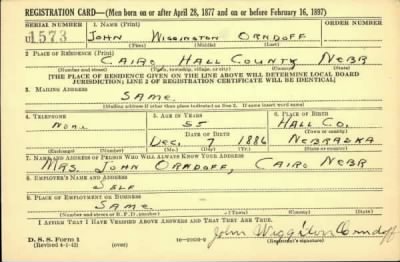 REGISTRATION CARD—(Men born on or after April 28, 1877 and on or before February 16, 1897)
SERIAL NUMBER 1. NAME (Print) ORDER NUMBER
U 1573 JOHN WIGGINTON ORNDOFF
(First) (Middle) (Last)
2. PLACE OF RESIDENCE (Print)
CAIRO HALL COUNTY NEBR
(Number and street) (Town, township, village, or city) (County) (State)
[THE PLACE OF RESIDENCE GIVEN ON THE LINE ABOVE WILL DETERMINE LOCAL BOARD
JURISDICTION; LINE 2 OF REGISTRATION CERTIFICATE WILL BE IDENTICAL]
3. MAILING ADDRESS
SAME
[Mailing address if other than place indicated on line 2. If same insert word same]
4. TELEPHONE 5. AGE IN YEARS 6. PLACE OF BIRTH
55 HALL CO.
DATE OF BIRTH (Town or county)
DEC. 7 1886 NEBRASKA
(Exchange) (Number) (Mo.) (Day) (Yr.) (State or country)
7. NAME AND ADDRESS OF PERSON WHO WILL ALWAYS KNOW YOUR ADDRESS
MRS. JOHN ORNDOFF, CAIRO NEBR
8. EMPLOYER'S NAME AND ADDRESS
SELF
9. PLACE OF EMPLOYMENT OR BUSINESS
SAME
(Number and street or R. F. D. number) (Town) (County) (State)
I AFFIRM THAT I HAVE VERIFIED ABOVE ANSWERS AND THAT THEY ARE TRUE.
D. S. S. Form 1
(Revised 4-1-42) (over) John Wigginton Orndoff
(Registrant's signature)